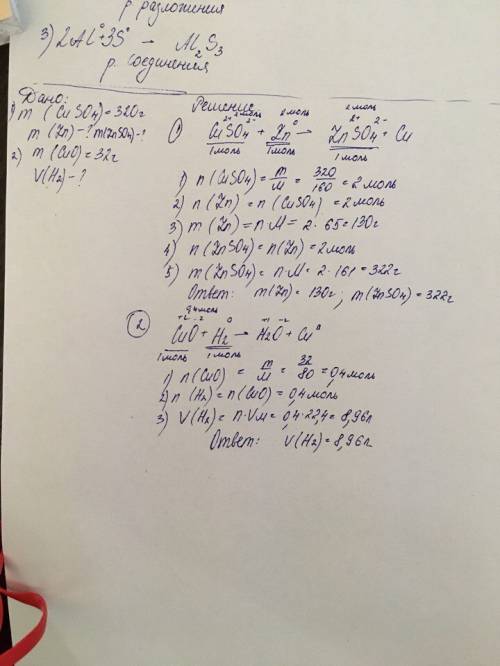 р. разложения
3) 2Al⁰ + 3S⁰ → Al₂S₃
р. соединения
Дано:
1) m (CuSO₄) = 320г
m (Zn) - ? m(ZnSO₄) - ?
2) m (CuO) = 32г
V(H₂) - ?
Решение
2 моль 2 моль 2 моль
2+ 2- 0 2+ 2-
① CuSO₄ + Zn → ZnSO₄ + Cu
1 моль 1 моль 1 моль
1) n (CuSO₄) = m/M = 320/160 = 2 моль
2) n (Zn) = n (CuSO₄) = 2 моль
3) m (Zn) = n·M = 2·65 = 130г
4) n (ZnSO₄) = n (Zn) = 2 моль
5) m (ZnSO₄) = n·M = 2·161 = 322г
Ответ: m(Zn) = 130г; m(ZnSO₄) = 322г
0,4 моль
+2 -2 0 +1 -2 0
② CuO + H₂ → H₂O + Cu
1 моль 1 моль
1) n (CuO) = m/M = 32/80 = 0,4 моль
2) n (H₂) = n (CuO) = 0,4 моль
3) V(H₂) = n·Vм = 0,4·22,4 = 8,96л
Ответ: V(H₂) = 8,96л